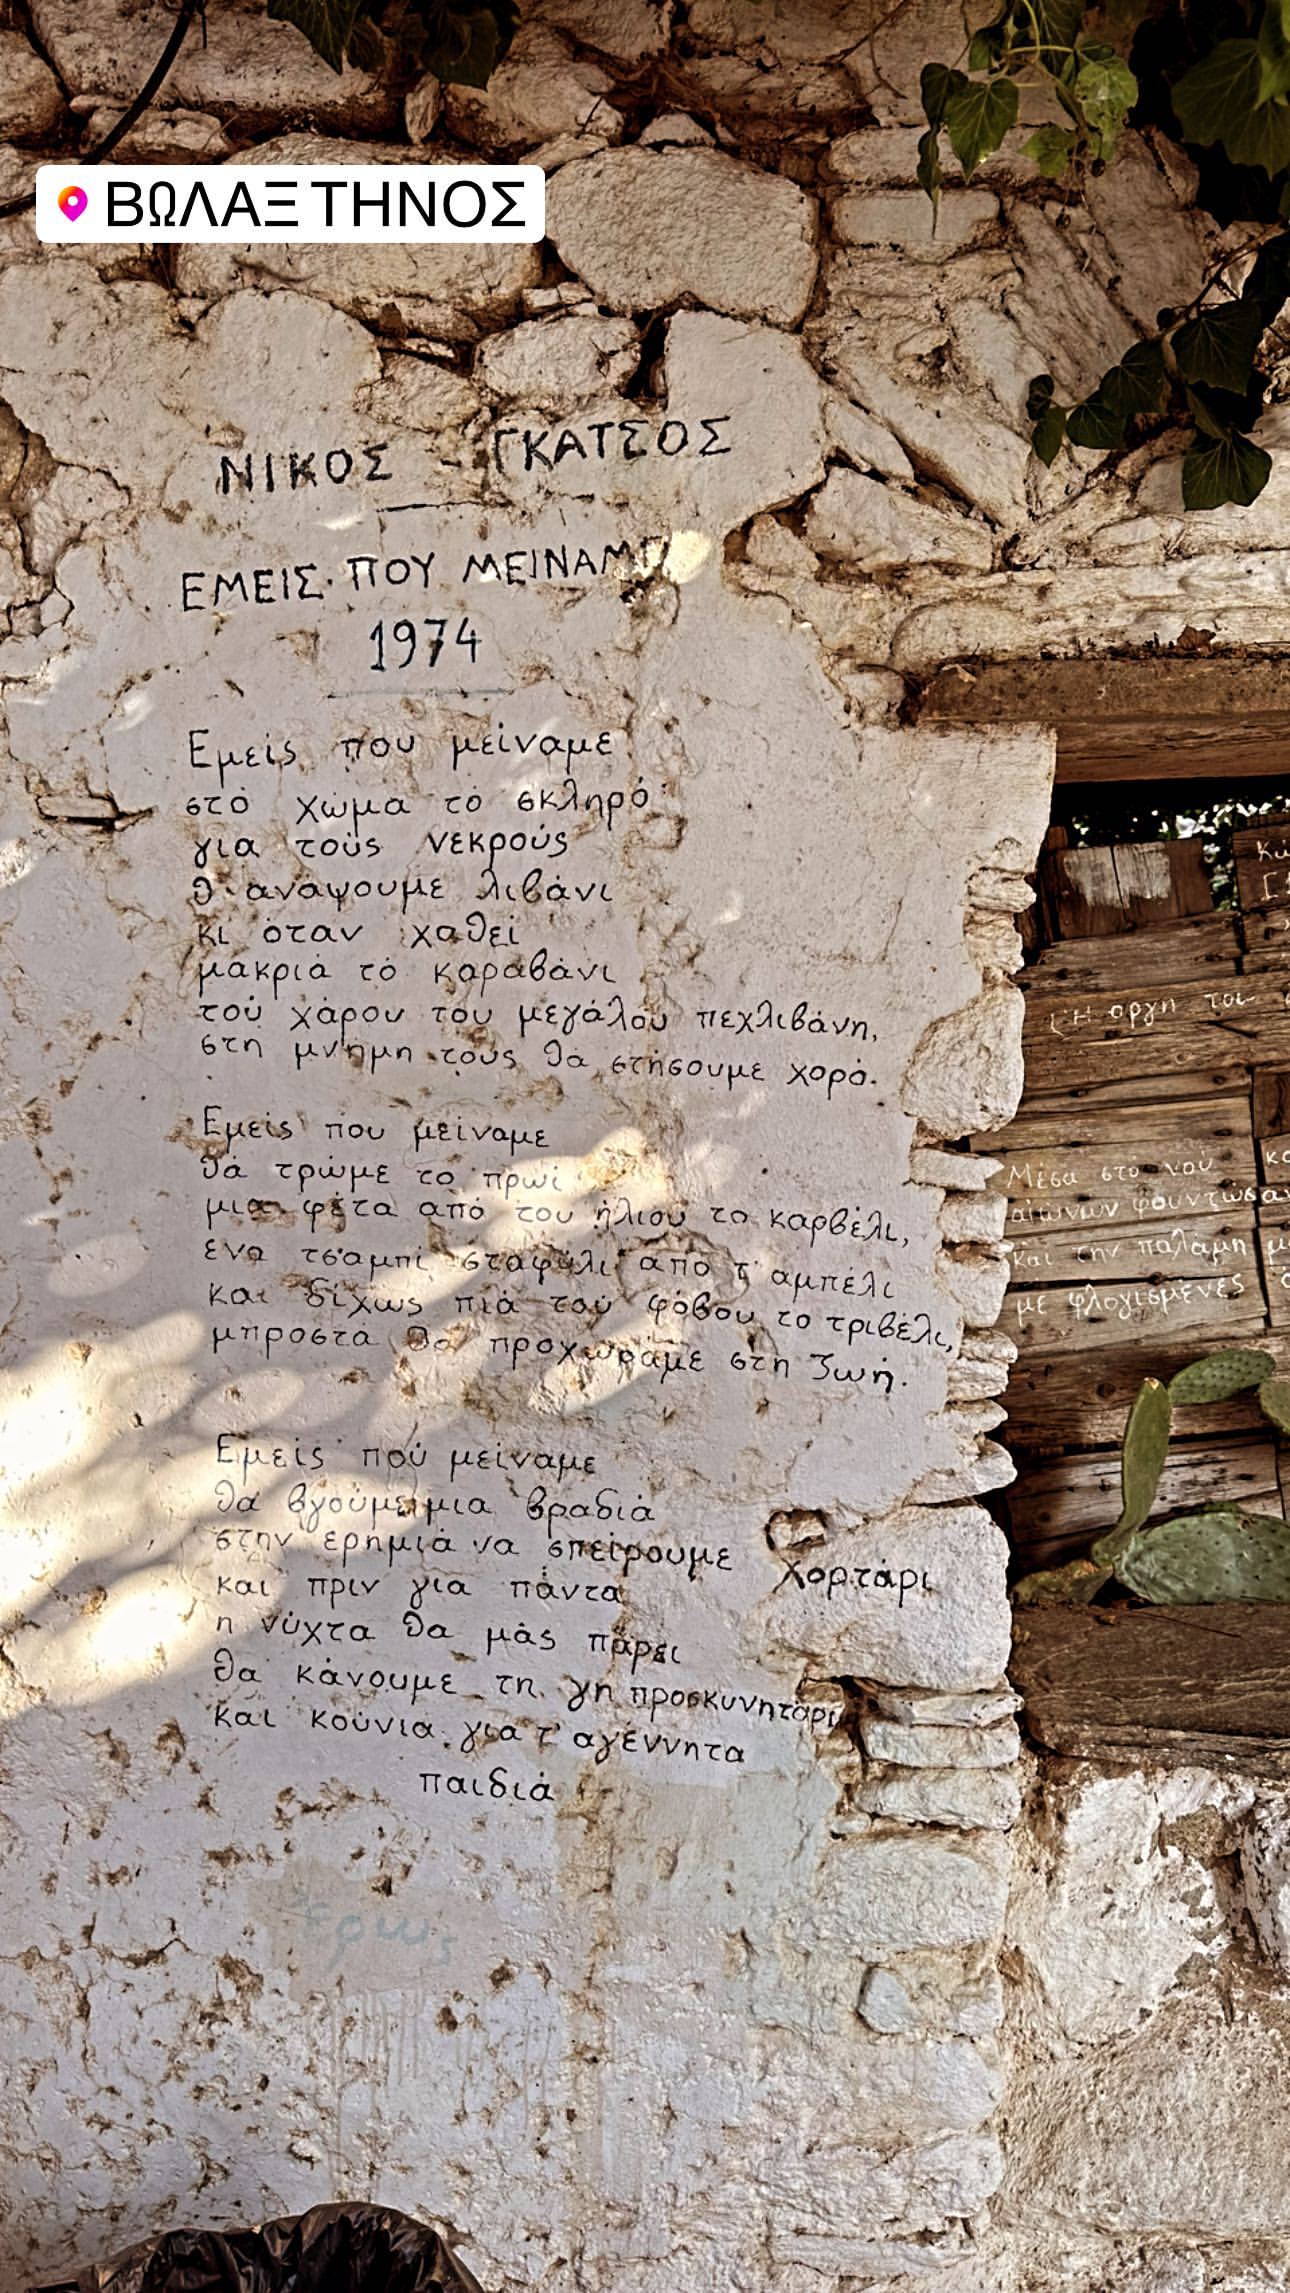 ΒΩΛΑΞ ΤΗΝΟΣ
ΝΙΚΟΣ - ΓΚΑΤΣΟΣ
ΕΜΕΙΣ · ΠΟΥ ΜΕΙΝΑΜΕ
1974
Εμείς που μείναμε
στό χώμα τό σκληρό
για τούς νεκρούς
θ' ανάψουμε λιβάνι
κι όταν χαθεί
μακριά τό καραβάνι
τού χάρου του μεγάλου πεχλιβάνη,
στη μνήμη τους θα στήσουμε χορό.
Εμείς που μείναμε
θά τρώμε το πρωί
μια φέτα από του ήλιου το καρβέλι,
ένα τσαμπί σταφύλι από τ' αμπέλι
και δίχως πιά τού φόβου το τριβέλι,
μπροστά θα προχωράμε στη ζωή.
Εμείς πού μείναμε
θά βγούμε μια βραδιά
στην ερημιά να σπείρουμε χορτάρι
και πριν για πάντα
η νύχτα θα μάς πάρει
θα κάνουμε τη γη προσκυνητάρι
και κούνια για τ' αγέννητα
παιδιά
Έρως
Ή οργή του
Μέσα στό νού
αίωνων φουντώσαν
και την παλάμη
με φλογισμένες